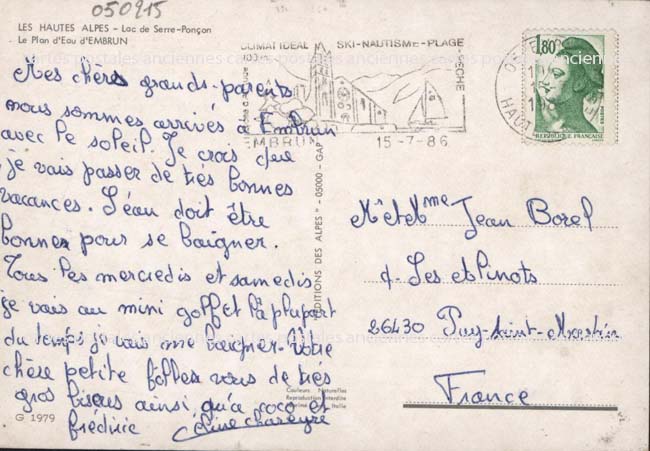 050215
LES HAUTES ALPES - Lac de Serre-Ponçon
Le Plan d'Eau d'EMBRUN
CLIMAT IDEAL SKI-NAUTISME-PLAGE
EMBRUN 15-7-86
1,80
REPUBLIQUE FRANCAISE
Mes chères grands-parents
nous sommes arrivés à Embrun
avec le soleil. Je crois que
je vais passer de très bonnes
vacances. L'eau doit être
bonnes pour se baigner.
Tous les mercredis et samedis
je vais au mini golf et la plupart
du temps je vais me baigner. Votre
chère petite filles vous de très
gros bisous ainsi qu'a coco et
frédéric Céline chareyre
EDITIONS DES ALPES - 05000 - GAP
M et Mme Jean Borel
26430 Puy-Saint-Martin
France
Couleurs Naturelles
Reproduction Interdite
Italie
G 1979
cartes postales anciennes